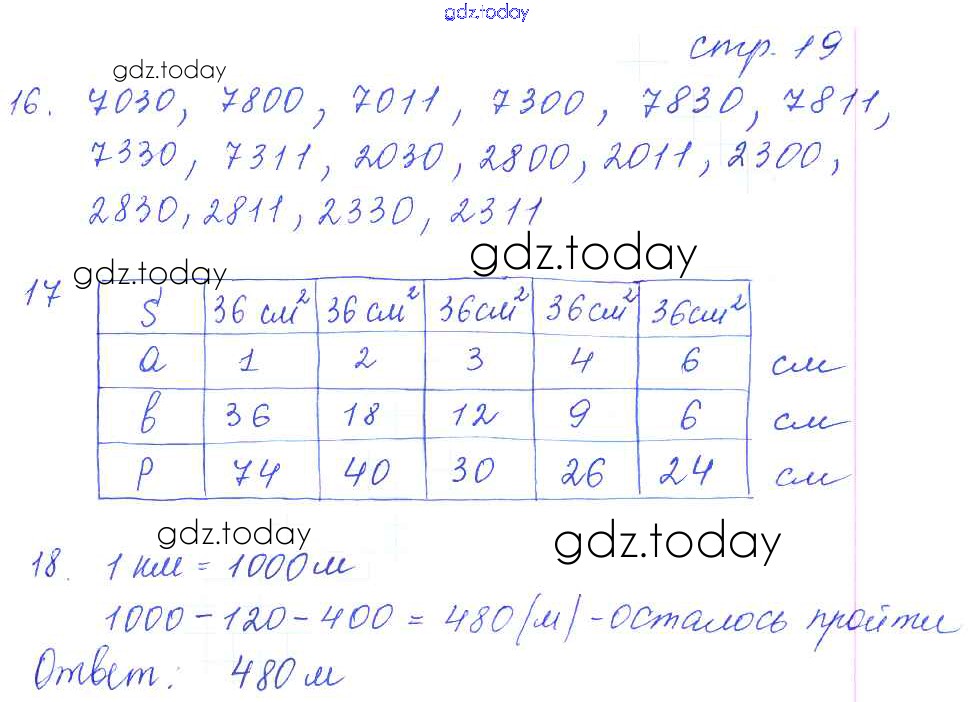 gdz.today
стр. 19
gdz.today
16. 7030, 7800, 7011, 7300, 7830, 7811,
7330, 7311, 2030, 2800, 2011, 2300,
2830, 2811, 2330, 2311
gdz.today
gdz.today
17
S 36 см² 36 см² 36см² 36см² 36см²
a 1 2 3 4 6 см
b 36 18 12 9 6 см
P 74 40 30 26 24 см
gdz.today
gdz.today
18. 1 км = 1000 м
1000 - 120 - 400 = 480 (м) - осталось пройти
Ответ: 480 м